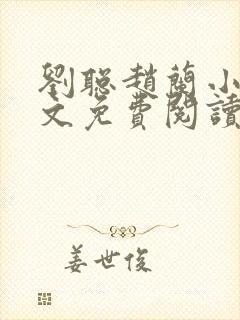 劉聰趙蘭小
文免費閱讀
姜世俊